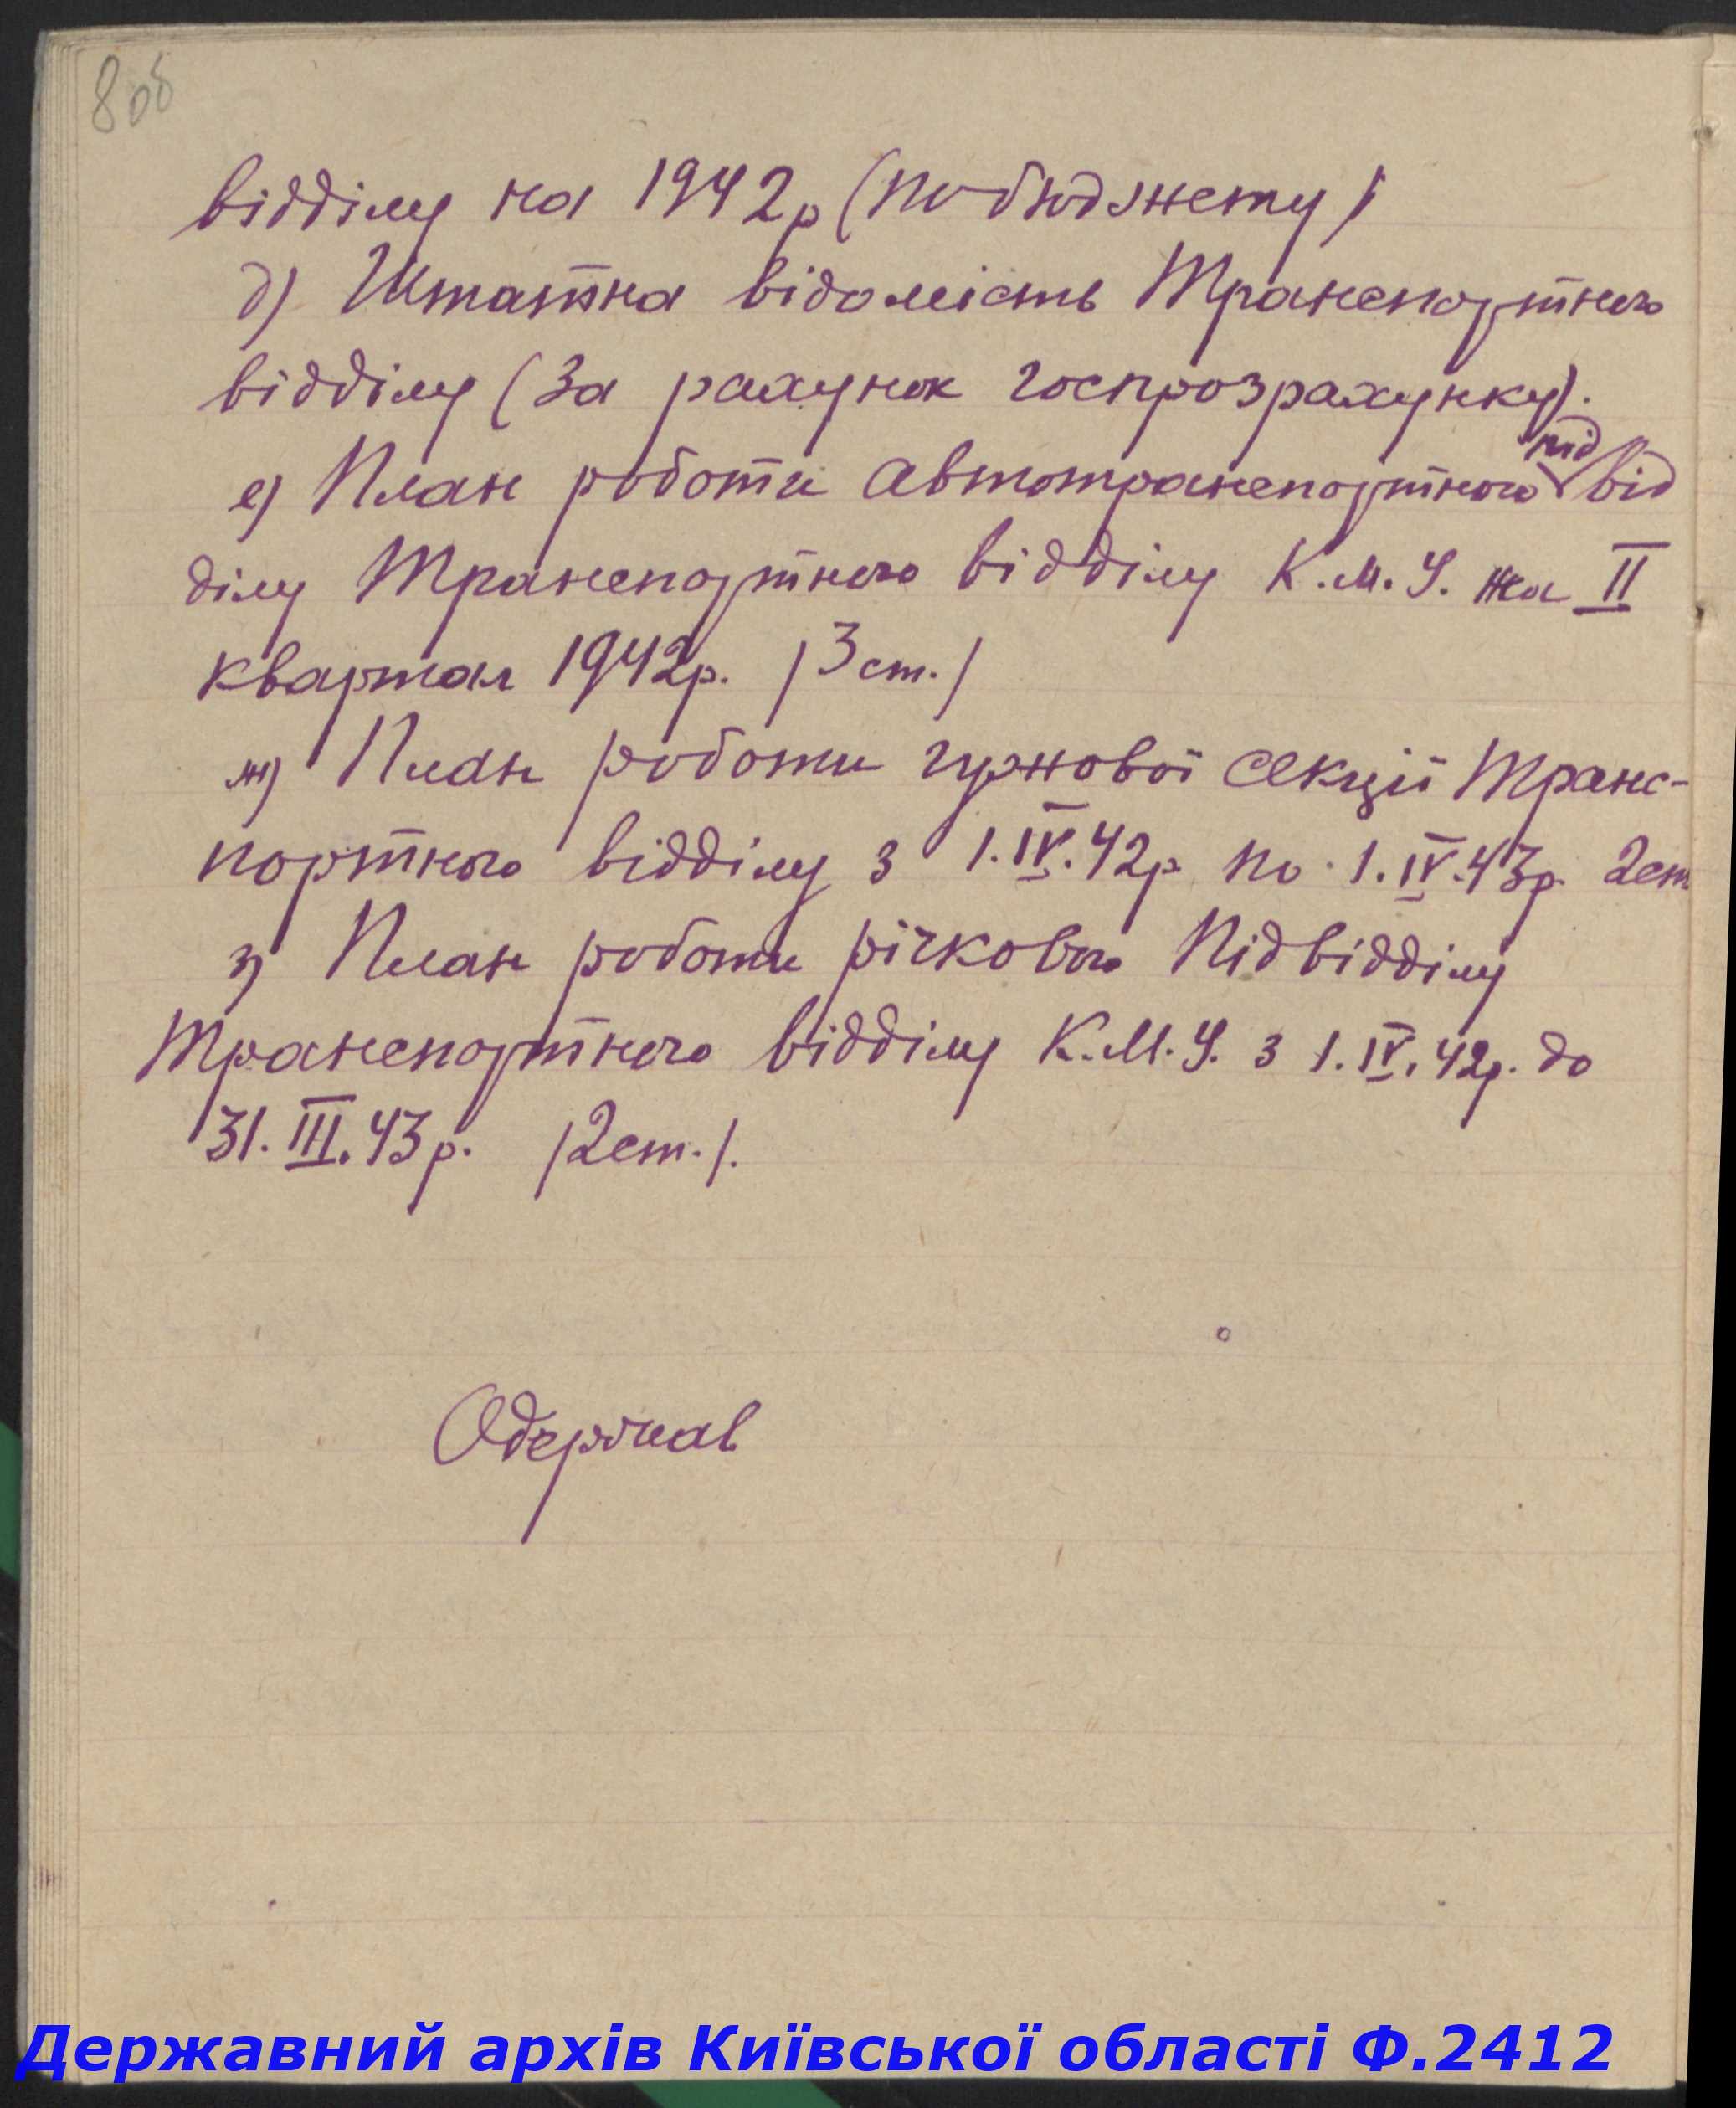 8об
відділу на 1942р (по бюджету)
д) Штатна відомість Транспортного
відділу (За рахунок госпрозрахунку).
е) План роботи автотранспортного під від
ділу Транспортного відділу К.М.У. на II
квартал 1942р. /3 ст./
ж) План роботи гужової секції Транс-
портного відділу з 1.IV.42р по 1.IV.43р. 2ст
з) План роботи річкового Підвідділу
Транспортного відділу К.М.У. з 1.IV.42р. до
31.III.43р. /2ст./.
Одержав
Державний архів Київської області Ф.2412